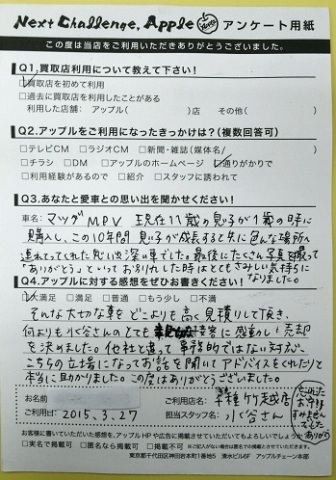 Next Challenge. Apple アンケート用紙
この度は当店をご利用いただきありがとうございました。
Q1.買取店利用について教えて下さい！
☑買取店を初めて利用
□過去に買取店を利用したことがある
利用した店舗： アップル（　　　）店　その他（　　　）
Q2.アップルをご利用になったきっかけは？（複数回答可）
□テレビCM □ラジオCM □新聞・雑誌（媒体名/　　　）
□チラシ □DM □アップルのホームページ ☑通りがかりで
□利用経験があるので □紹介 □スタッフに誘われて
Q3.あなたと愛車との思い出を聞かせて下さい！
車名： マツダ MPV 現在11歳の息子が1歳の時に
購入し、この10年間 息子が成長すると共に色んな場所へ
連れてってくれた思い出深い車でした。最後にたくさん写真を撮って
「ありがとう」といってお別れした時はとてもさみしい気持ちに
なりました。
Q4.アップルに対する感想をぜひお書きください！
☑大満足 □満足 □普通 □もう少し □不満
そんな大切な車をどこよりも高く見積りして頂き、
何よりも水谷さんのとても親切な接客に感動し、売却
を決めました。他社と違って事務的ではない対応、
こちらの立場になってお話を聞いてアドバイスをくれたりと
本当に助かりました。この度はありがとうございました。
お名前
ご利用店名： 幹線竹尾越店
ご利用日： 2015.3.27
担当スタッフ名： 水谷さん
お客様に書いていただいた感想を、アップルHPや広告に掲載させていただいてもよろしいでしょうか
□実名で掲載可 □匿名なら掲載可 □不可
東京都千代田区神田岩本町1番地5 清水ビル6F アップルチェーン本部